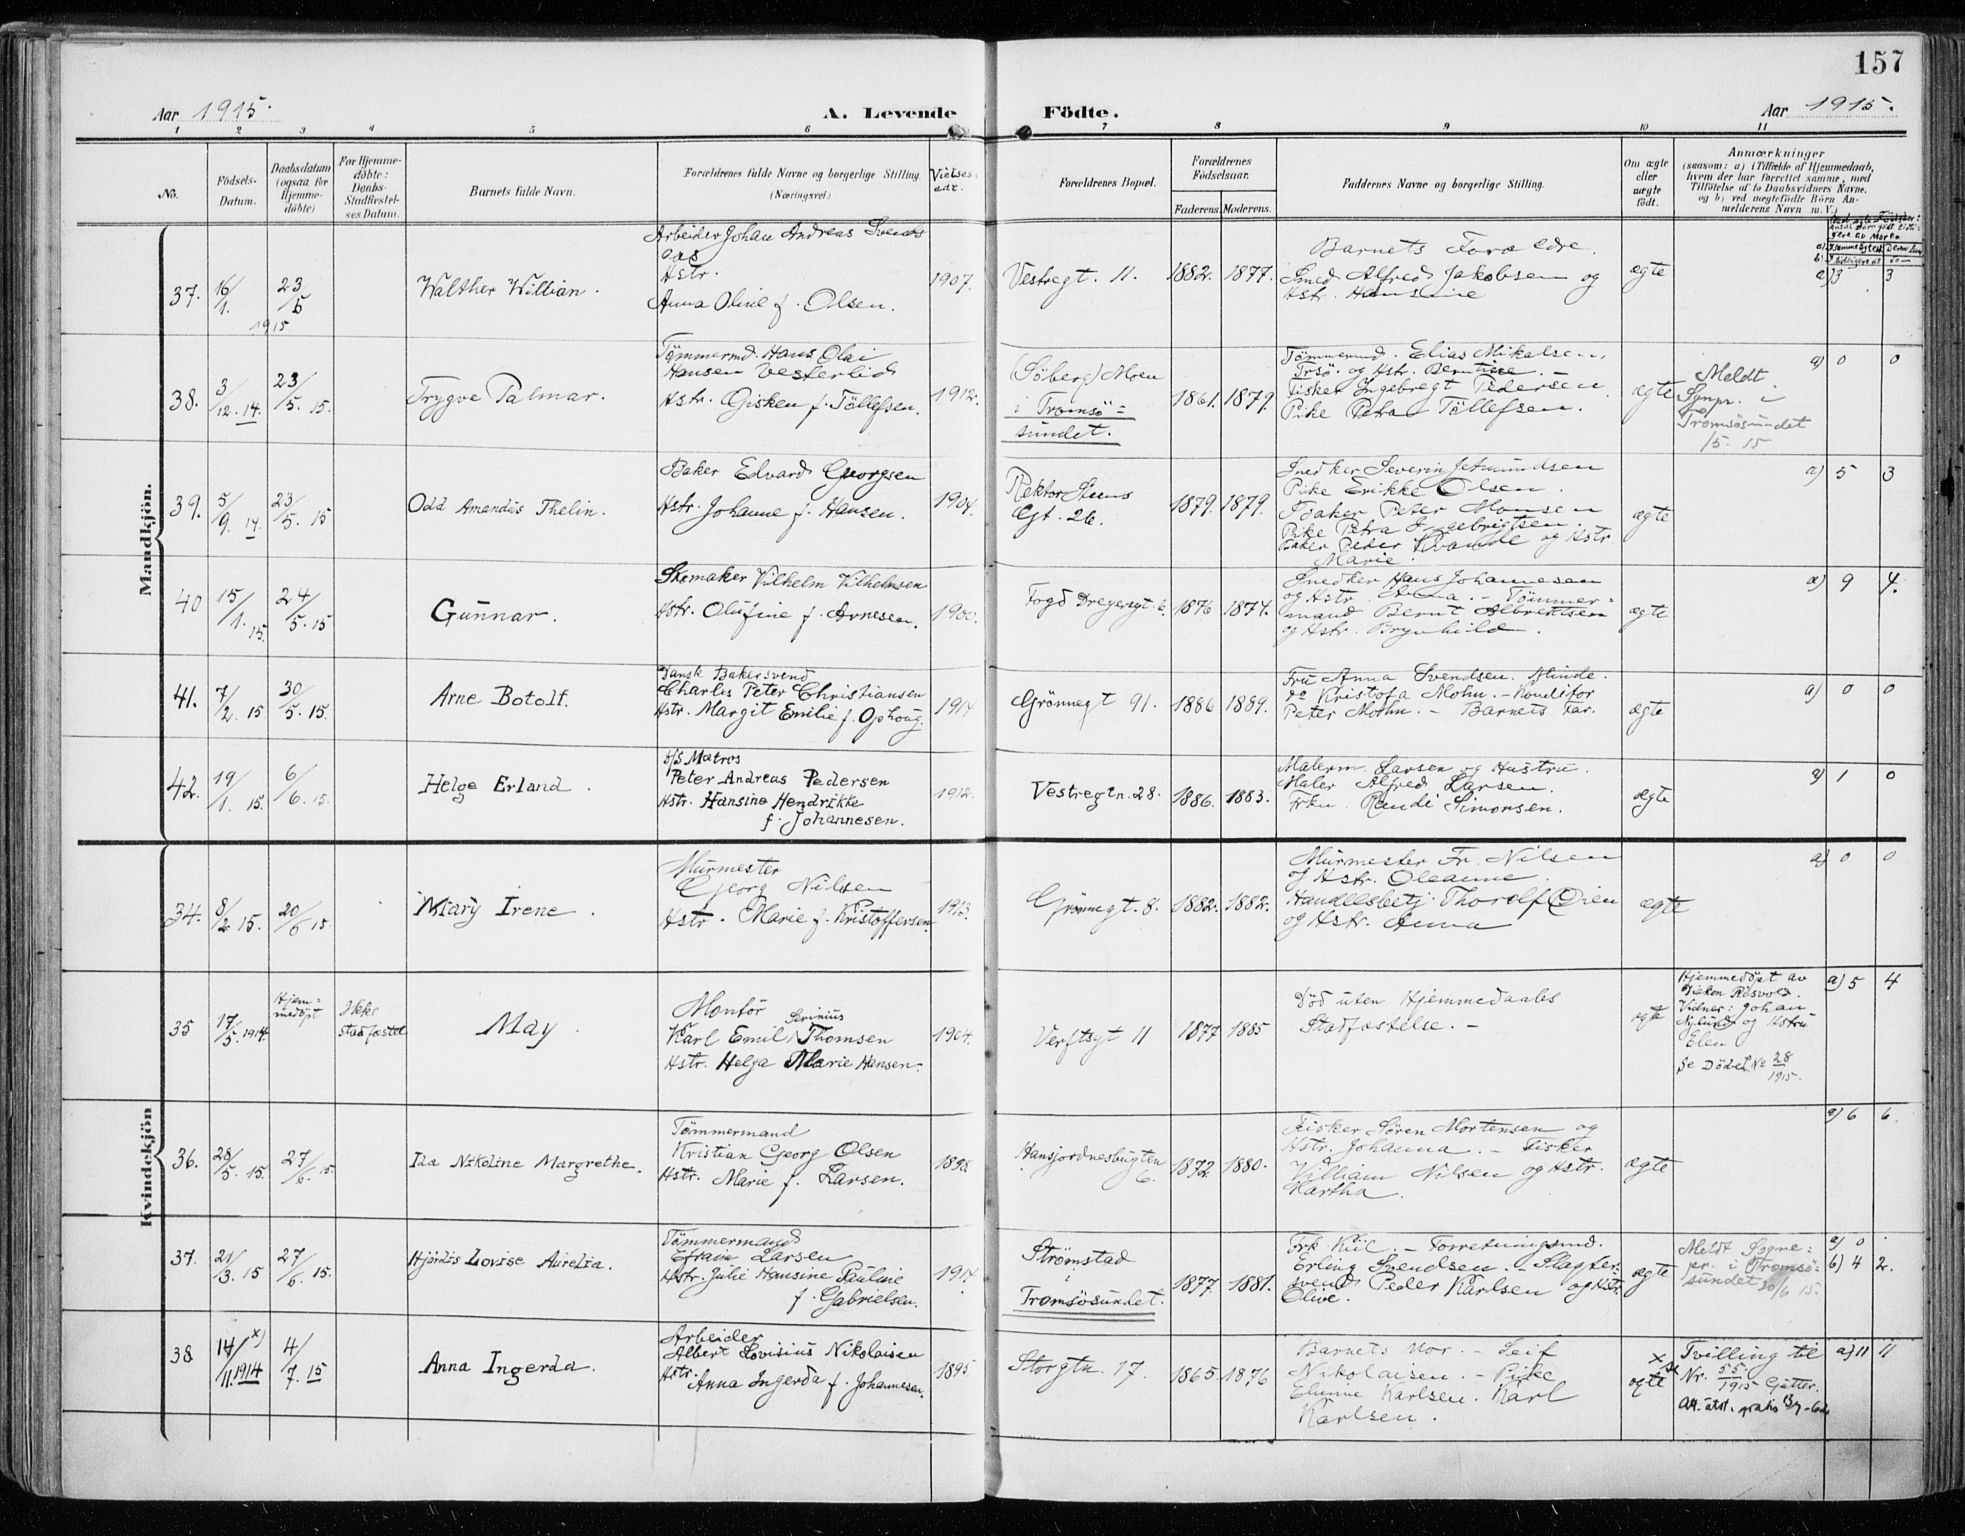 157
Aar 1915.
A. Levende
Födte.
Aar 1915.
1 2 3 4 5 6 7 8 9 10 11
No.
Födsels-
Datum.
Daabsdatum
(ogsaa for
Hjemme-
döbte)
For Hjemme-
döbte:
Daabs-
Stadfæstel-
ses Datum.
Barnets fulde Navn.
Forældrenes fulde Navne og borgerlige Stilling.
(Næringsvei.)
Vielses-
aar.
Forældrenes Bopæl.
Forældrenes
Födselsaar.
Faderens. Moderens.
Faddernes Navne og borgerlige Stilling.
Om ægte
eller
uægte
födt.
Anmærkninger
(saasom: a) i Tilfælde af Hjemmedaab,
hvem der har forrettet samme, med
Tilföielse af to Daabsvidners Navne.
og b) ved uegtefödte Börn An-
melderens Navn m. V.)
Mandkjön.
37. 16/1. 23/5 1915
Walther William.
Arbeider Johan Andreas
Hstr.
Anna Oline f. Olsen.
1907.
Vestregt. 11.
1882. 1877.
Barnets Forældre.
Smed Alfred Jakobsen og
Hstr. Hansine
ægte
a) 3 3
38. 3/12. 14. 23/5. 15.
Trygve Palmar.
Tömmermd. Hans Olai
Hansen Vesterlid
Hstr. Gisken f. Töllefsen.
1912.
(Söberg) Moen
i Tromsö=
sundet.
1861. 1879.
Tömmermd. Elias Mikalsen,
Trsö. og Hstr. Berntine. -
Fisker Ingebregt Pedersen
Pike Petra Töllefsen.
ægte
Meldt
Sgnpr. i
Tromsösundet
/5. 15
a) 0 0
39. 5/9. 14. 23/5. 15
Odd Amandus Thelin.
Baker Edvard Georgsen
Hstr. Johanne f. Hansen.
1904.
Rektor Steens
Gt. 26.
1879. 1879.
Snedker Severin Jetmundsen
Pike Erikke Olsen.
Baker Peter Monsen
Pike Petra Ingebrigtsen.
Baker Peder Kvande og Hstr.
Marie
ægte
a) 5 3
40 15/1. 15. 24/5. 15
Gunnar.
Skomaker Vilhelm Vilhelmsen
Hstr. Olufine f. Arnesen.
1900.
Fogd Dreyersgt. 6.
1876 1874.
Snedker Hans Johannesen
og Hstr. Anna. - Tömmer=
mand Bernt Albrektsen
og Hstr. Brynhild.
ægte
a) 9 4.
41. 7/2. 15 30/5. 15.
Arne Botolf.
Dansk Bakersvend
Charles Peter Christiansen
Hstr. Margit Emilie f. Ophoug.
1914
Grönnegt 91.
1886 1889.
Fru Anna Svendsen. Minde.
do Kristofa Mohn. - Konditor
Peter Mohn. - Barnets Far.
ægte
a) 0 0
42. 19/1. 15. 6/6. 15.
Helge Erland.
D/S Matros
Peter Andreas Pedersen
Hstr. Hansine Hendrikke
f. Johannesen.
1912.
Vestregtn. 28.
1886. 1883.
Malerm. Larsen og Hustru.
Maler Alfred Larsen.
Frkn. Randi Simonsen.
ægte
a) 1 0
Kvindekjön
34. 8/2 15. 20/6 15
Mary Irene.
Murmester
Georg Nilsen
Hstr. Marie f. Kristoffersen.
1913.
Grönnegt. 8.
1882. 1882.
Murmester Fr. Nilsen
og Hstr. Oleanne.
Handelsbetj. Thorolf Öien
og Hstr. Anna
ægte
a) 0 0
35 17/5. 1914. Hjem=
medöpt
Ikke
stadfæstet
May.
Montör
Karl Emil Severinius Thomsen
Hstr. Helga Marie Hansen.
1904.
Verftsgt 11
1877 1885
Död uten Hjemmedaabs
Stadfæstelse. -
ægte
Hjemmedöpt av
Diakon Rösvold.
Vidner: Johan
Nylund og Hstru
Elen
Se Döde No 28/1915.
a) 5 4
36. 28/5. 15. 27/6. 15.
Ida Nikoline Margrethe.
Tömmermand
Kristian Georg Olsen
Hstr. Marie f. Larsen.
1898.
Hansjordnesbugten
6.
1872 1880.
Fisker Sören Mortensen og
Hstr. Johanna. - Fisker
Villiam Nilsen og Hstr.
Martha.
ægte
a) 6 6.
37. 21/3. 15 27/6. 15.
Hjördis Lovise Aurelia.
Tömmermand
Efraim Larsen
Hstr. Julie Hansine Pauline
f. Gabrielsen.
1914.
Strömstad
i
Tromsösundet.
1877. 1881.
Frk. Kiil. - Forretningsmd.
Erling Svendsen. - Slagter-
svend Peder Karlsen og Hstr.
Olive.
ægte
Meldt Sogne=
pr. i Tromsö=
sundet 30/6 15.
a) 0
b) 4 2.
38 14/11. 1914 x) 4/7. 15
Anna Ingerda.
Arbeider
Albert Lovisius Nikolaisen
Hstr.
Anna Ingerda f. Johannesen.
1895.
Storgtn. 17.
1865. 1876
Barnets Mor. - Leif
Nikolaisen. - Pike
Karlsen. Karl
Karlsen.
ægte
x Tvilling til
Nr. 55/1915 Gutter.
Att. utst. gratis
a) 11 11